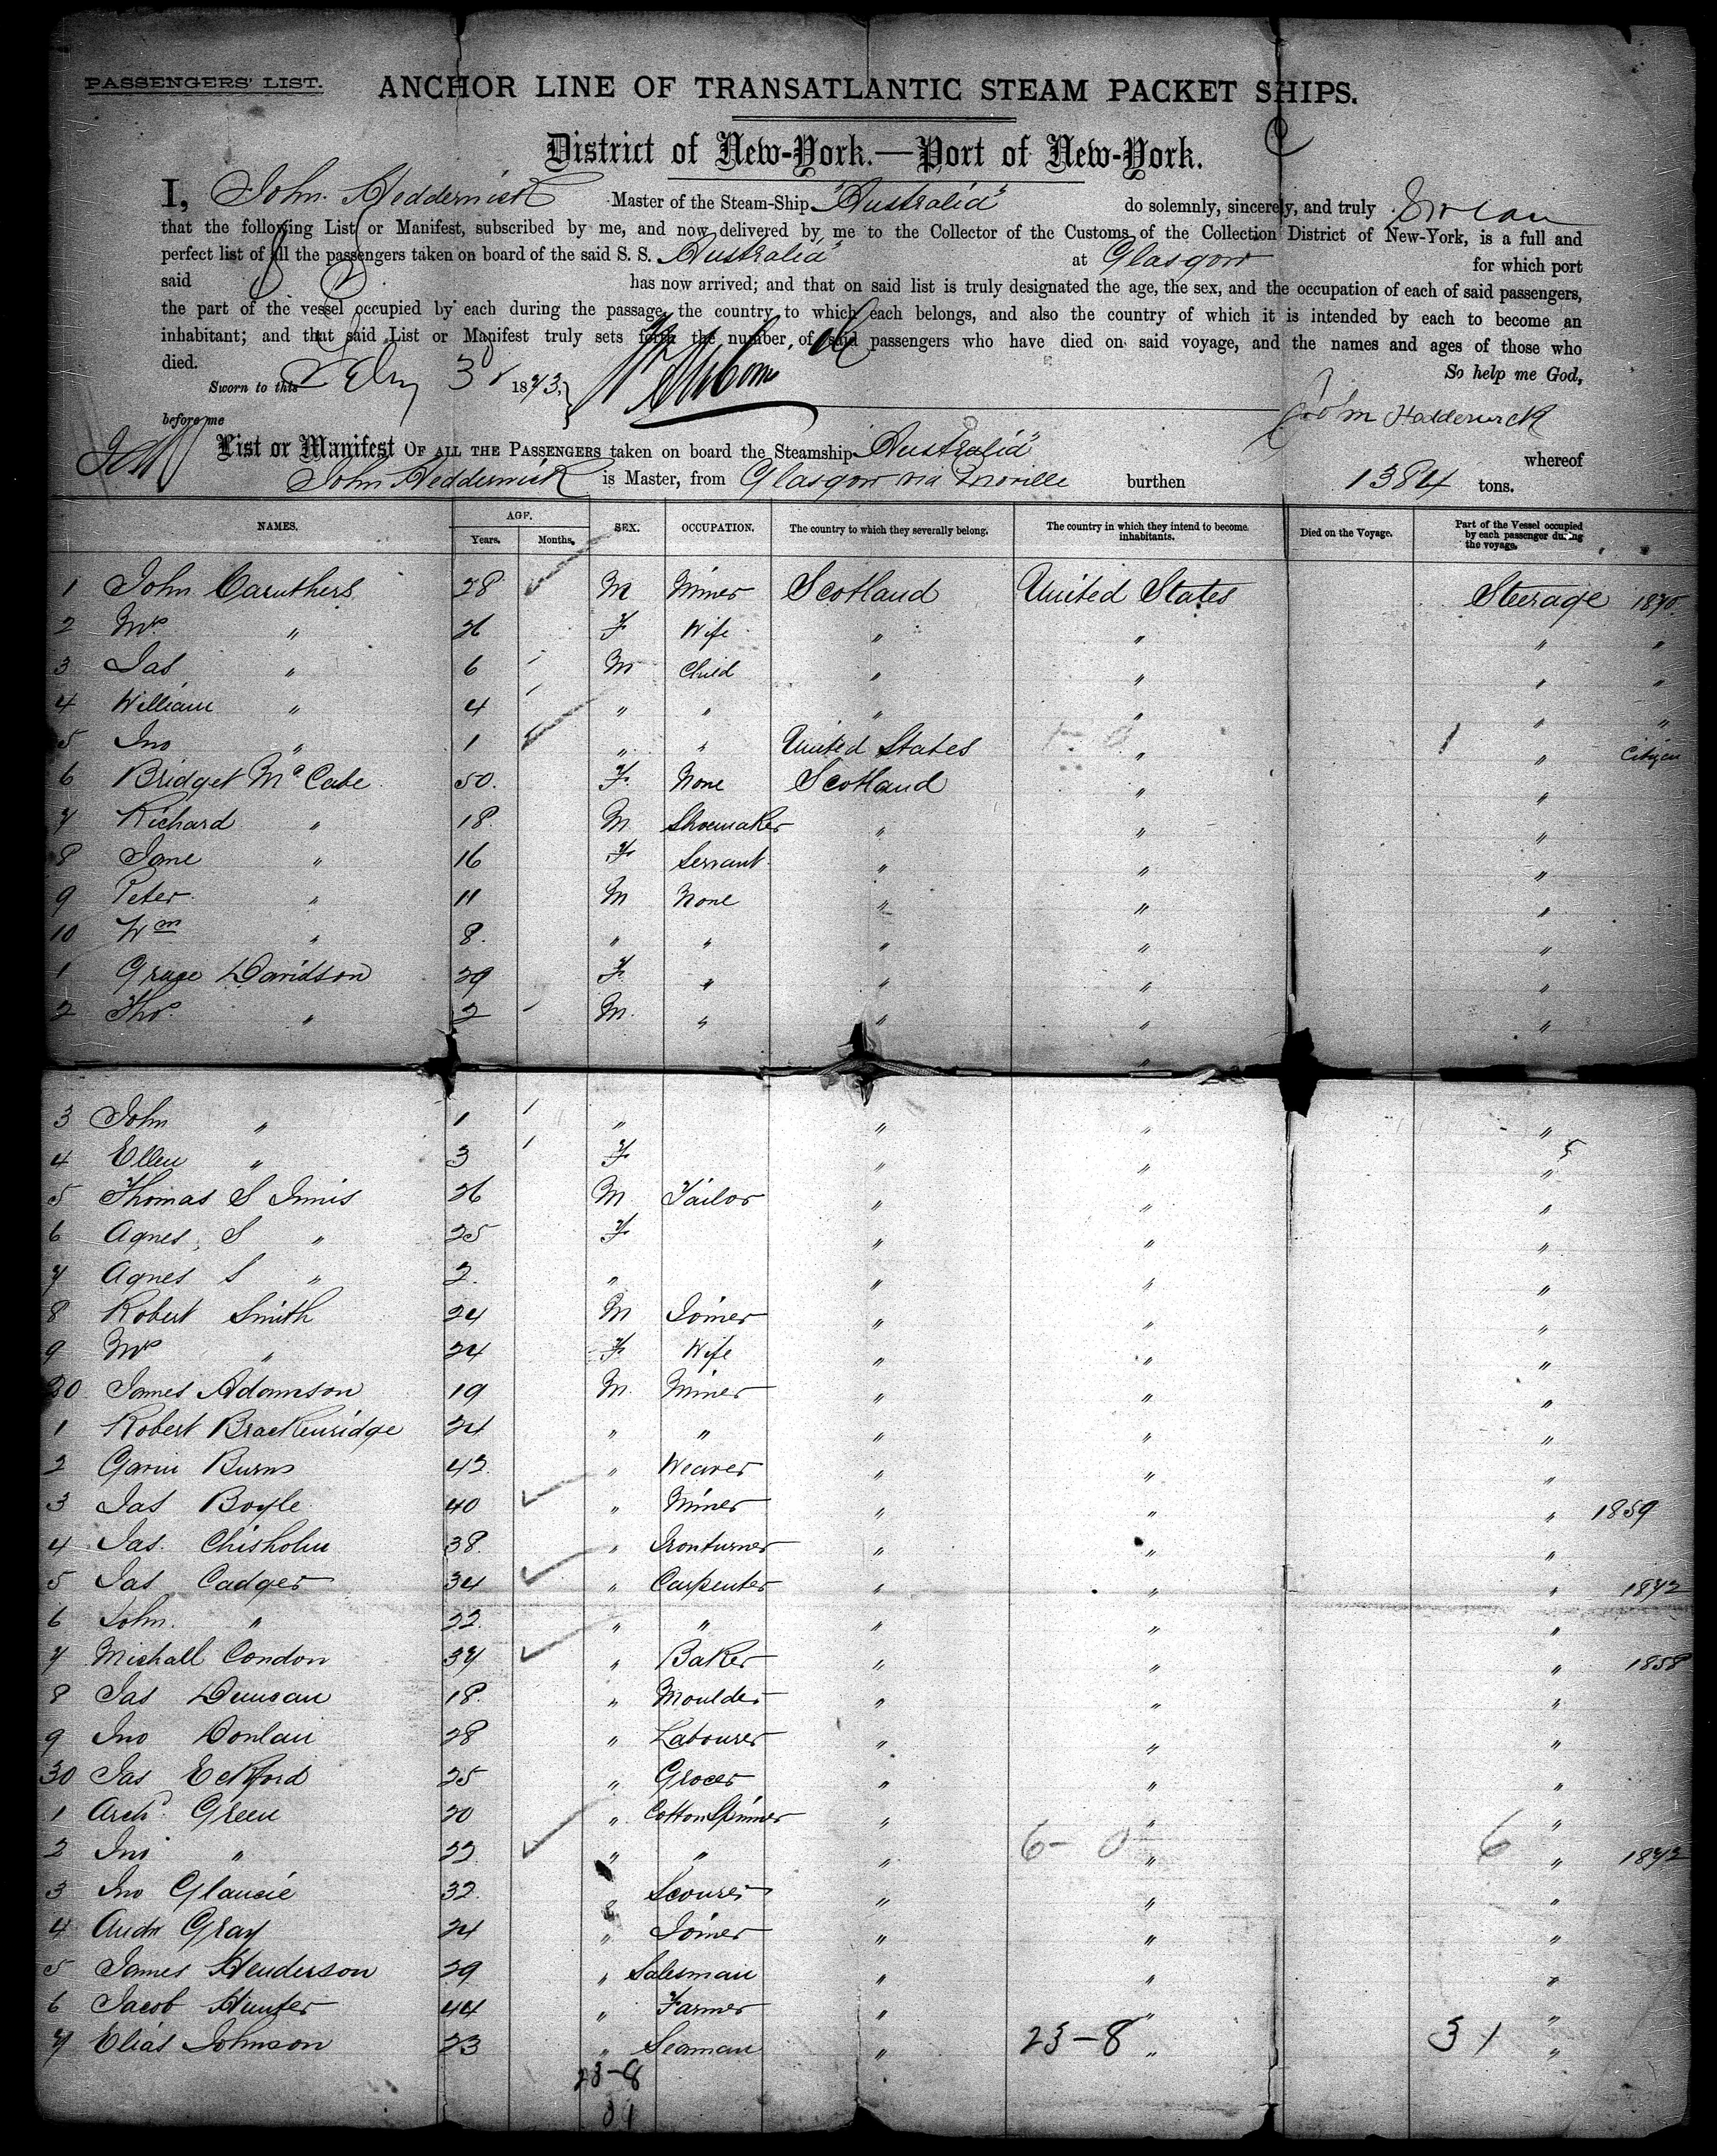 PASSENGERS' LIST. ANCHOR LINE OF TRANSATLANTIC STEAM PACKET SHIPS.
District of New-York.—Port of New-York.
I, John Hedderwick Master of the Steam-Ship "Australia" do solemnly, sincerely, and truly Swear
that the following List or Manifest, subscribed by me, and now delivered by me to the Collector of the Customs of the Collection District of New-York, is a full and
perfect list of all the passengers taken on board of the said S. S. "Australia" at Glasgow for which port
said has now arrived; and that on said list is truly designated the age, the sex, and the occupation of each of said passengers,
the part of the vessel occupied by each during the passage, the country to which each belongs, and also the country of which it is intended by each to become an
inhabitant; and that said List or Manifest truly sets forth the number of said passengers who have died on said voyage, and the names and ages of those who
died. So help me God,
Sworn to this Feby 3d 1873,
before me John Hedderwick
List or Manifest OF ALL THE PASSENGERS taken on board the Steamship "Australia" whereof
John Hedderwick is Master, from Glasgow via Moville burthen 1384 tons.
NAMES. AGE. Years. Months. SEX. OCCUPATION. The country to which they severally belong. The country in which they intend to become inhabitants. Died on the Voyage. Part of the Vessel occupied by each passenger during the voyage.
1 John Caruthers 28 M Miner Scotland United States Steerage 1870
2 Mrs " 26 F Wife " " " "
3 Jas " 6 M Child " " " "
4 William " 4 " " " " " "
5 Jno " 1 " " United States 1-0 " 1 " Citizen
6 Bridget McCabe 50 F None Scotland " "
7 Richard " 18 M Shoemaker " " "
8 Jane " 16 F Servant " " "
9 Peter " 11 M None " " "
10 Wm " 8 " " " " "
1 Grace Davidson 29 F " " " "
2 Thos " 2 M " " " "
3 John " 1 " " " "
4 Ellen " 3 F " " "
5 Thomas S Innis 26 M Tailor " " "
6 Agnes S " 25 F " " "
7 Agnes S " 2 " " " "
8 Robert Smith 24 M Joiner " " "
9 Mrs " 24 F Wife " " "
20 James Adamson 19 M Miner " " "
1 Robert Brackenridge 24 " " " " "
2 Gavin Burns 42 " Weaver " " "
3 Jas Boyle 40 " Miner " " " 1859
4 Jas Chisholm 38 " Ironturner " " "
5 Jas Cadger 34 " Carpenter " " " 1872
6 John " 22 " " " " "
7 Michall Condon 37 " Baker " " " 1858
8 Jas Duncan 18 " Moulder " " "
9 Jno Donlan 28 " Labourer " " "
30 Jas Eckford 25 " Grocer " " "
1 Archd Green 20 " Cotton Spinner " " "
2 Jno " 22 " " " 6-0 " 6 " 1872
3 Jno Glancie 32 " Scourer " " "
4 Andw Gray 24 " Joiner " " "
5 James Henderson 29 " Salesman " " "
6 Jacob Hunter 44 " Farmer " " "
7 Elias Johnson 23 " Seaman " 23-8 " 31 "
23-8
31